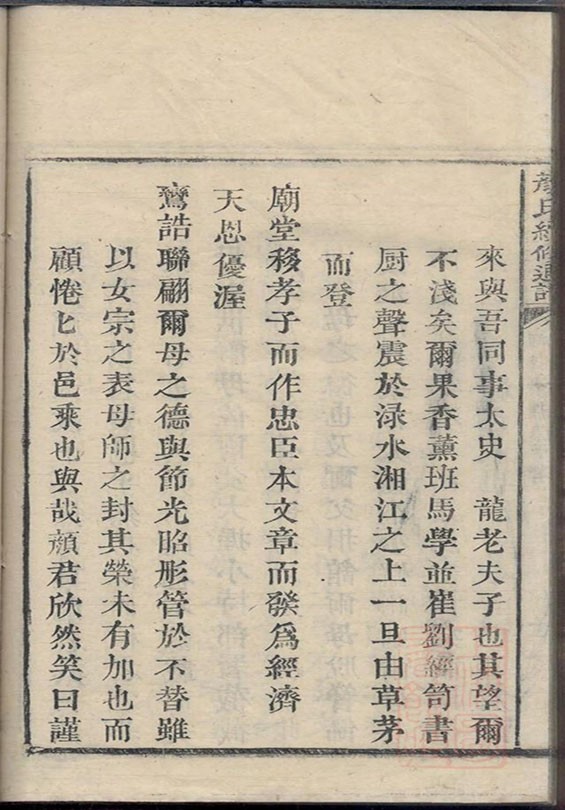 顏氏續修通譜
來與吾同事太史　龍老夫子也其望爾
不淺矣爾果香薰班馬學並崔劉經笥書
厨之聲震於淥水湘江之上一旦由草茅
而登
廟堂移孝子而作忠臣本文章而發爲經濟
天恩優渥
鸞誥聯翩爾母之德與節光昭彤管於不替雖
以女宗之表母師之封其榮未有加也而
顧惓匕於邑乘也與哉顏君欣然笑曰謹